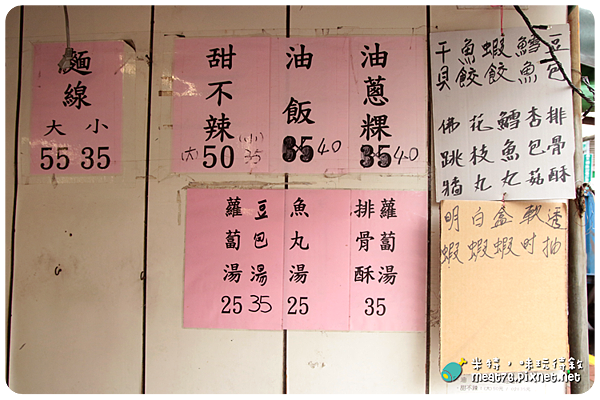 麵線
大 小
55 35
甜不辣
(大) 50 (小) 35
油飯
40
油蔥粿
40
蘿蔔湯
25
豆包湯
35
魚丸湯
25
排骨酥
蘿蔔湯
35
干貝
魚餃
蝦餃
鱈魚
豆包
佛跳牆
花枝丸
鱈魚丸
杏包菇
排骨酥
明蝦
白蝦
盒蝦
軟吋
透抽
米特，味玩待敘
meat76.pixnet.net